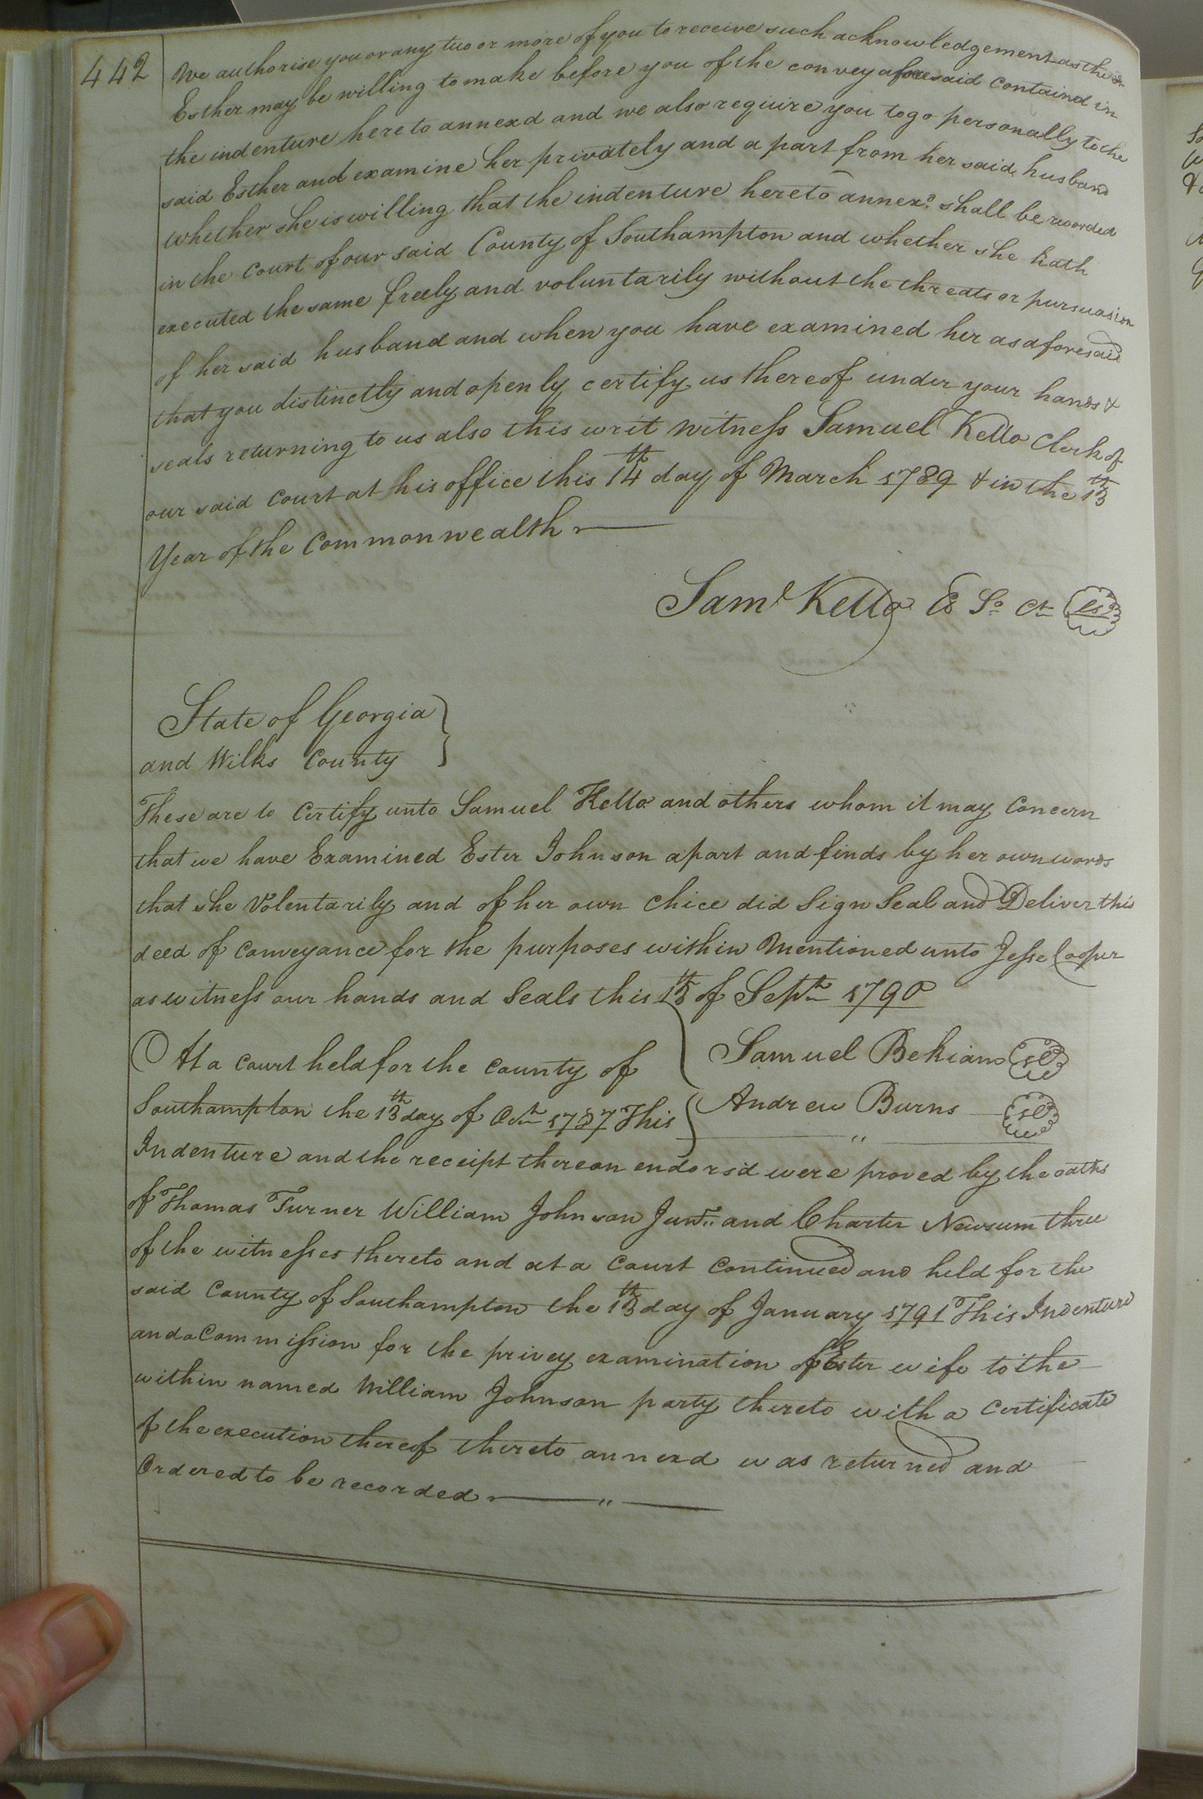 442
We authorise you or any two or more of you to receive such acknowledgement as the
Esther may be willing to make before you of the convey aforesaid contained in
the indenture hereto annexd and we also require you to go personally to the
said Esther and examine her privately and a part from her said husband
whether she is willing that the indenture hereto annexd. shall be recorded
in the court of our said County of Southampton and whether she hath
executed the same freely and voluntarily without the threats or pursuasion
of her said husband and when you have examined her as aforesaid
that you distinctly and openly certify us thereof under your hands &
seals returning to us also this writ witness Samuel Kello Clerk of
our said court at his office this 14th day of March 1789 & in the 13th
Year of the Commonwealth
Saml Kello So Ct
State of Georgia
and Wilks County
These are to Certify unto Samuel Kello and others whom it may Concern
that we have Examined Ester Johnson apart and finds by her own words
that she Volentarily and of her own Chice did Sign Seal and Deliver this
deed of Conveyance for the purposes within Mentioned unto Jesse Cooper
as witness our hands and Seals this 13th of Septr 1790
Samuel Bekiam
Andrew Burns
At a Court held for the County of
Southampton the 13th day of Octr 1787 This
Indenture and the receipt thereon endorsd were proved by the oaths
of Thomas Turner William Johnson Junr. and Charter Newsum three
of the witnesses thereto and at a Court Continued and held for the
said County of Southampton the 13th day of January 1791 This Indenture
and a Commission for the privey examination of Ester wife to the
within named William Johnson party thereto with a Certificate
of the execution thereof thereto annexd was returned and
Ordered to be recorded